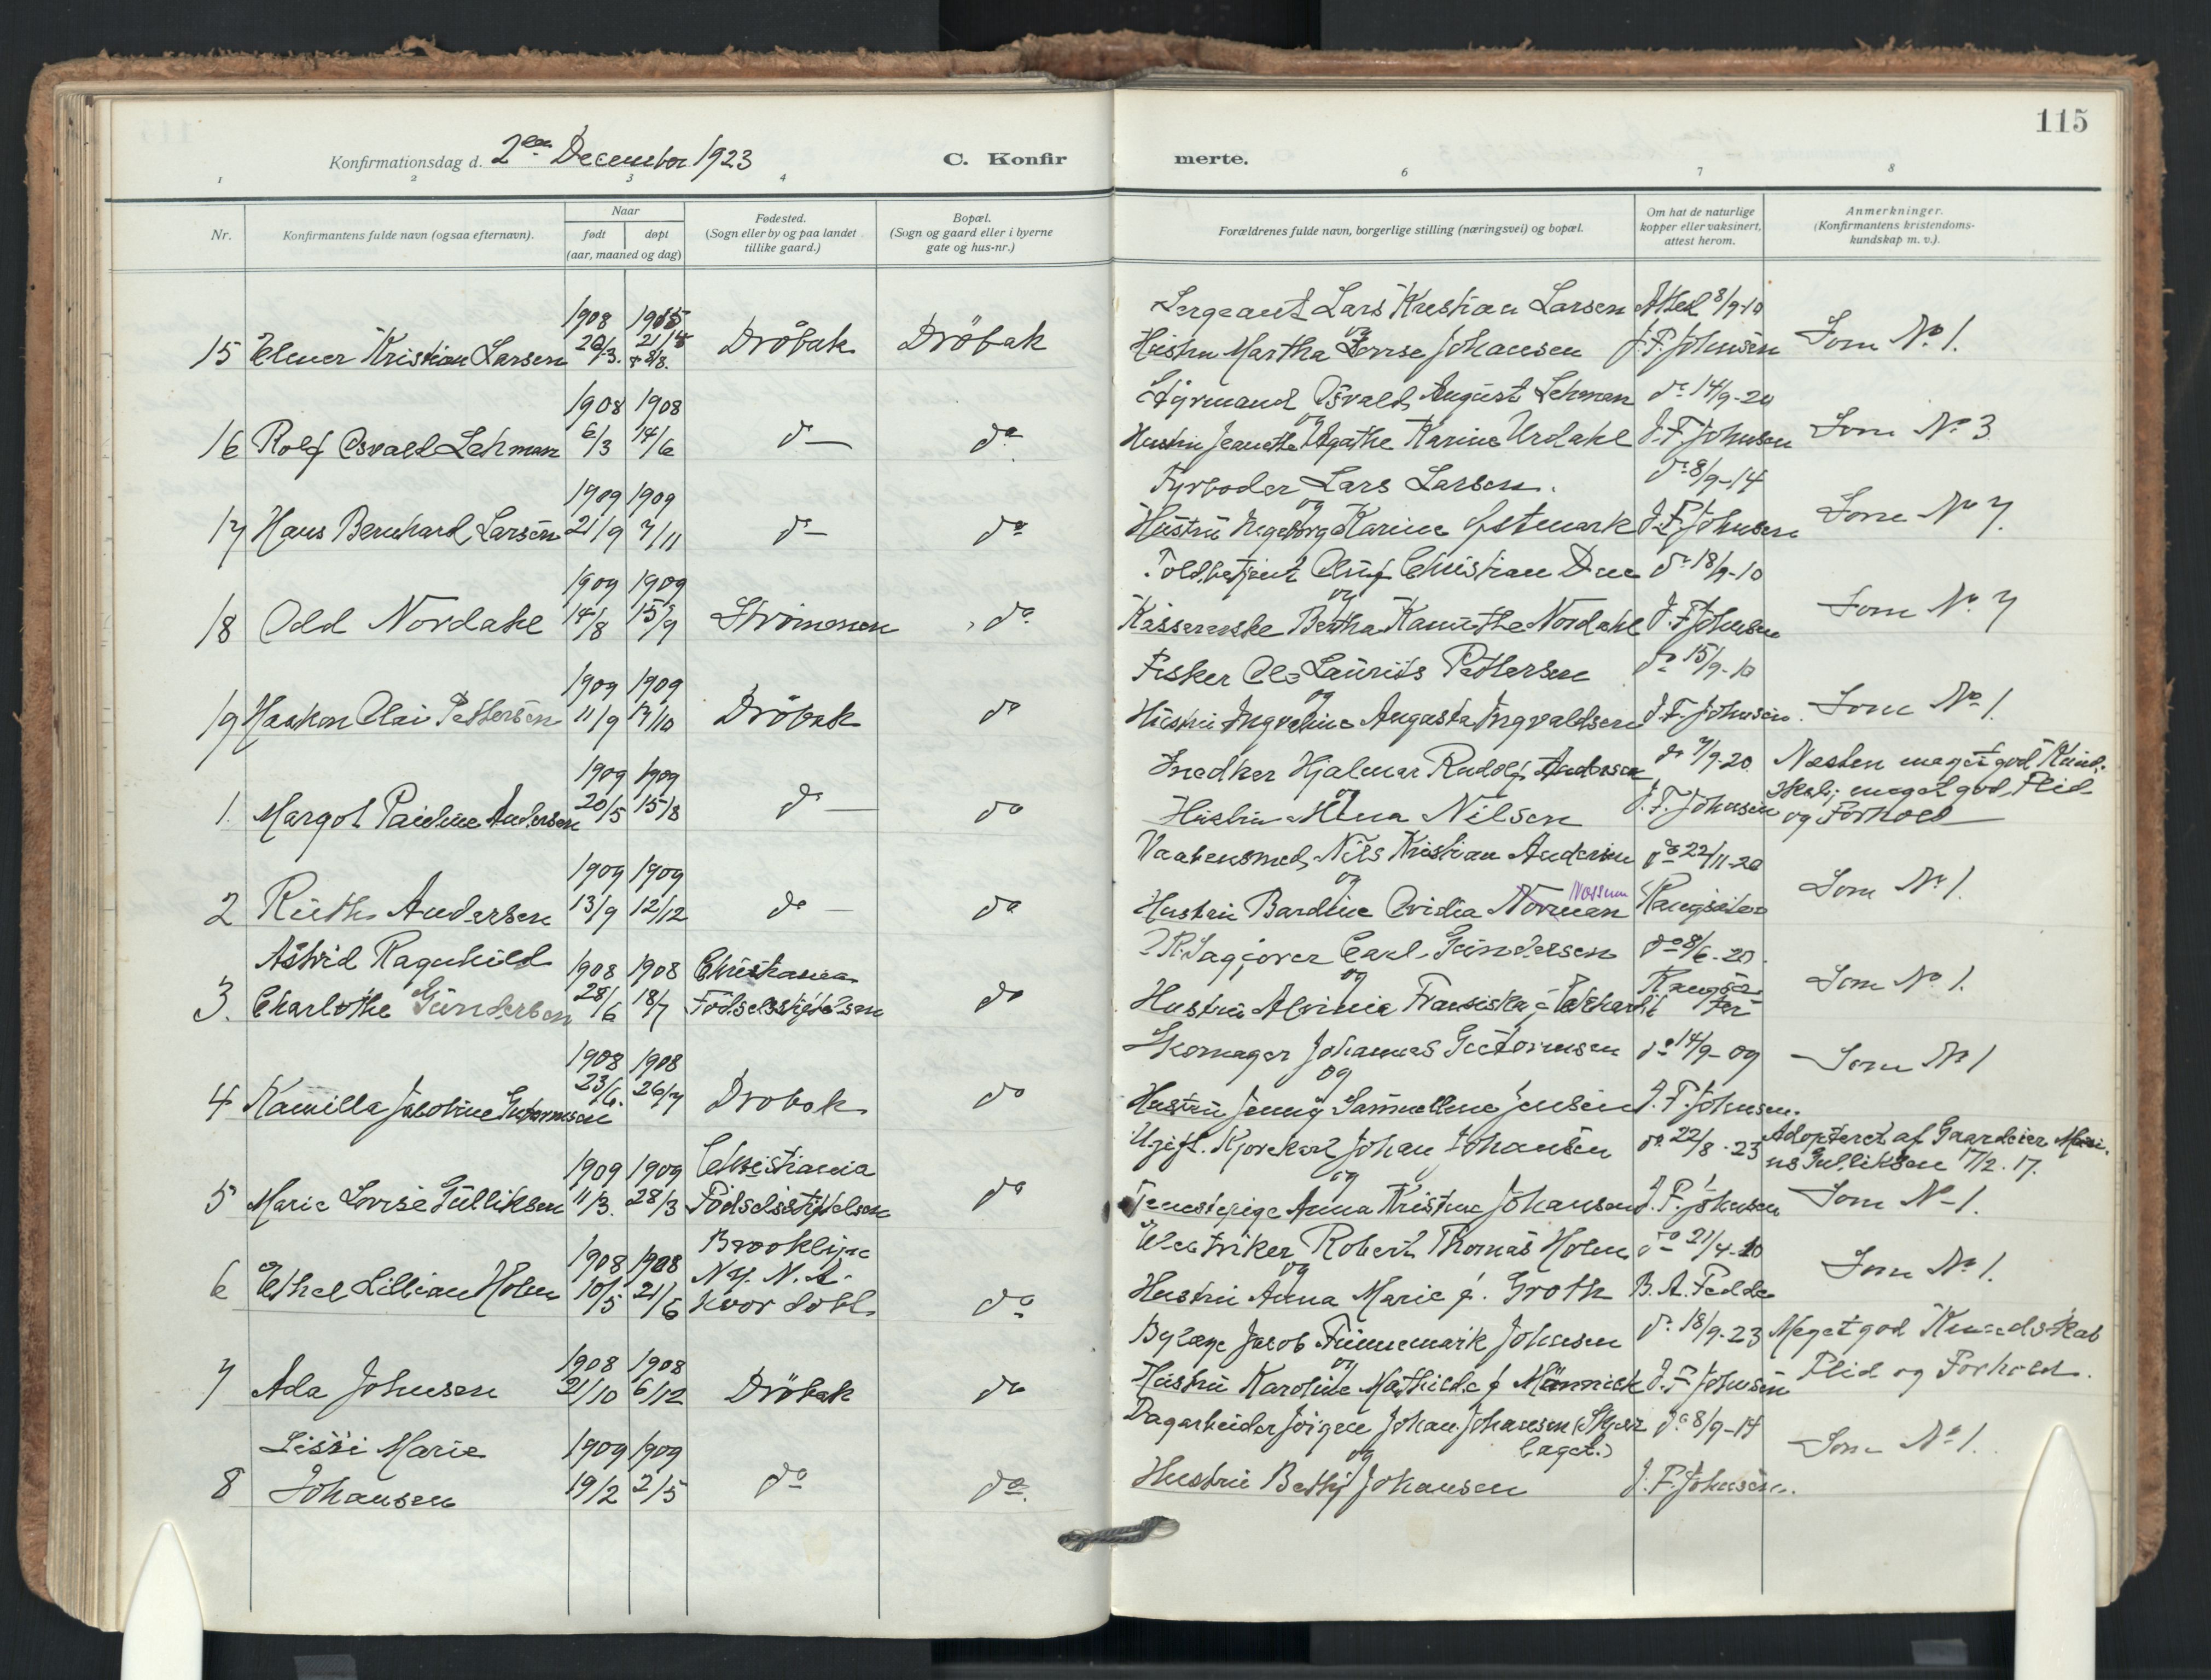 115
Konfirmationsdag d. 2den December 1923
C. Konfir
merte.
1 2 3 4 6 7 8
Nr.
Konfirmantens fulde navn (ogsaa efternavn).
Naar
født døpt
(aar, maaned og dag)
Fødested.
(Sogn eller by og paa landet
tillike gaard.)
Bopæl.
(Sogn og gaard eller i byerne
gate og hus-nr.)
Forældrenes fulde navn, borgerlige stilling (næringsvei) og bopæl.
Om hat de naturlige
kopper eller vaksinert,
attest herom.
Anmerkninger.
(Konfirmantens kristendoms-
kundskap m. v.).
1908
Sergeant Lars Kristian Larsen Attest 8/9-10
15 Elmer Kristian Larsen Dröbak Dröbak
og
Hustru Martha Johansen J.F. Johnsen Som No 1.
1908 1908
Styrmand Osvald August Lehman do 14/9-20
16 Rolf Osvald Lehman 6/3 14/6 do — do
og
Hustru Jeanette Agathe Karine Urdahl J.F. Johnsen Som No 3
1909 1909
Fyrboder Lars Larsen. do 8/9-14
17 Hans Bernhard Larsen 21/9 7/11 do — do
og
Hustru Ingeborg Karine Østmark J.F. Johnsen Som No 7.
1909 1909
Toldbetjent Oluf Christian Due do 18/9-10
18 Odd Nordahl 14/8 15/9 Strömmen do
og
Kassererske Bertha Kamithe Nordahl J.F. Johnsen Som No 7
1909 1909
Fisker Ole Laurits Pettersen do 15/9-10
19 Haakon Olai Pettersen 11/9 17/10 Dröbak do
og
Hustru Ingveline Augusta Ingvaldsen J.F. Johnsen. Som No 1.
1909 1909
Snedker Hjalmar Rudolf Andersen do 7/9-20 Næsten meget god Kund-
1. Margot Pauline Andersen 20/5 15/8 do — do
og
Hustru Mina Nilsen J.F. Johnsen skab; meget god Flid
og Forhold
1909 1909
Vaabensmed Nils Kristian Andersen do 22/11-20
2 Ruth Andersen 13/9 12/12 do — do
og
Hustru Bardine Ovidia Norman Nossum Kangsæter Som No 1.
Astrid Ragnhild
1908 1908 Christiania
O.R. Sagfører Carl Gundersen do 8/6-20.
3. Charlothe Gundersen 28/6 18/7 Fødselsstiftelsen do
og
Hustru Alvinia Fransiska f. Ekhardt Kangsæ-
ter Som No 1.
1908 1908
Skomager Johannes Gutormsen do 14/9-09
4 Kamilla Jacobine Gutormsen 23/6. 26/7 Dröbak do
og
Hustru Jenny Samueline Jensen J.F. Johnsen. Som No 1
1909 1909 Christiania
Ugift. Kjørekarl Johan Johansen do 22/8-23 Adopteret af Gaardeier Mari-
us Gulliksen 17/2.17.
5 Marie Lovise Gulliksen 11/3. 28/3 Fødselsstiftelsen do
og
Tjenestepige Anna Kristine Johansen J.F. Johnsen Som No 1.
1908 1908 Brooklyn
N.Y. N.A.
Electriker Robert Thomas Holm do 21/4-10
6 Ethel Lillian Holm 10/5 21/6 do
og
Hustru Anna Marie f. Groth B.A. Fedde Som No 1.
1908 1908
Bylæge Jacob Finnemark Johnsen do 18/9-23 Meget god Kundskab
7 Ada Johnsen 21/10 6/12 Dröbak do
og
Hustru Karoline Mathilde f Männick J.F. Johnsen Flid og Forhold.
Lissi Marie
1909 1909
Dagarbeider Jörgen Johan Johansen (Skjær- do 8/9-14
laget.)
8 Johansen 19/2 2/5 do do
og
Hustru Bethy Johansen J.F. Johnsen. Som No 1.